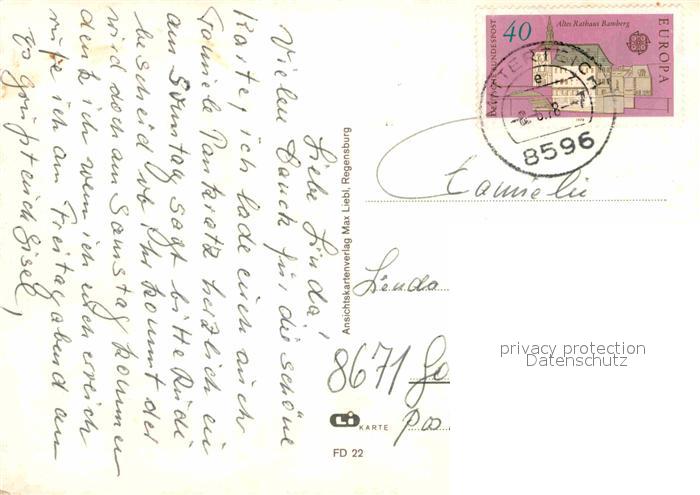 Liebe Linda!
Vielen Dank für die schöne
Karte, ich lade euch auch
Familie Pankratz herzlich ein
am Sonntag sagt bitte Rudi
bescheid ob ihr kommt der
wird doch am Samstag kommen
denk ich wenn ich euch erreich
rufe ich am Freitag abend an
Es grüßt euch Gisel,
Ansichtskartenverlag Max Liebl, Regensburg
40
Altes Rathaus Bamberg
DEUTSCHE BUNDESPOST
EUROPA
1978
8596
Familie
Linda
8671
Pos
privacy protection
Datenschutz
Li KARTE
FD 22